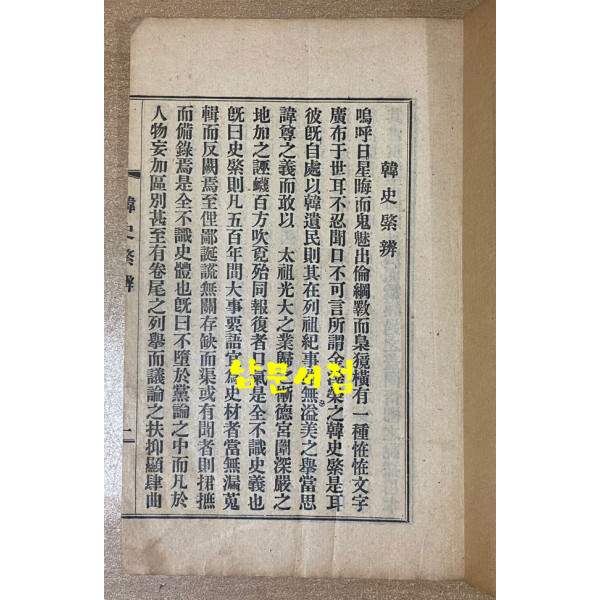 韓史綮辨
嗚呼日星晦而鬼魅出倫綱斁而梟獍橫有一種恠恠文字
廣布于世耳不忍聞口不可言所謂金澤榮之韓史綮是耳
彼旣自處以韓遺民則其在列祖紀事 無溢美之擧當思
諱尊之義而敢以 太祖光大之業歸之慚德宮闈深嚴之
地加之誣衊百方吹覓殆同報復者口氣是全不識史義也
旣曰史綮則凡五百年間大事要語宜爲史材者當無漏蒐
輯而反闕焉至俚鄙誕謊無關存缺而渠或有聞者則捃摭
而備錄焉是全不識史體也旣曰不墮於黨論之中而凡於
人物妄加區別甚至有卷尾之列擧而議論之扶抑顯肆曲
韓史綮辨
一
남문서점